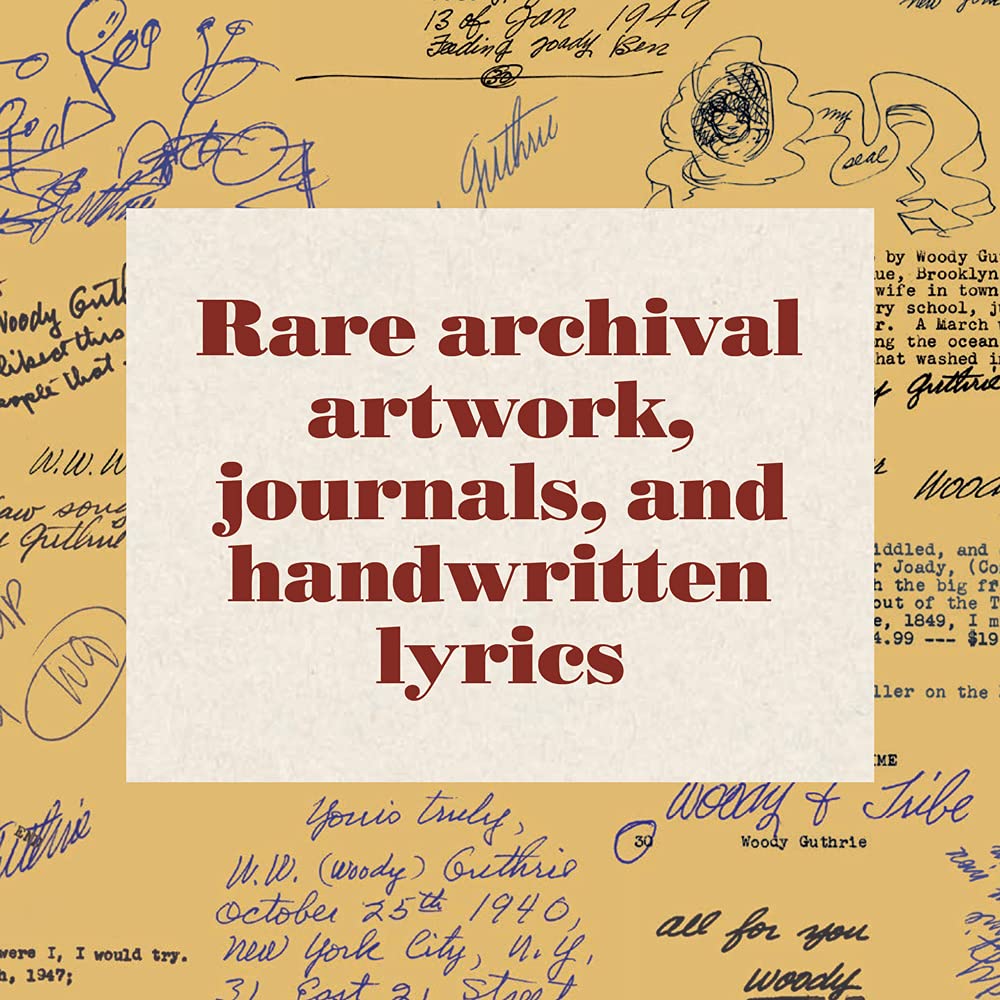 new
13 of Jan 1949
Fading Joady Ben
30
Guthrie
my
seal
Guthrie
Rare archival
artwork,
journals, and
handwritten
lyrics
Woody Guth
liked this
people that
W.W. W
saw song
Guthrie
WG
by Woody Gu
ue, Brooklyn
wife in town
ry school, j
r. A March
ng the ocean
hat washed i
y Guthrie
Wood
iddled, and
r Joady, (Co
h the big fr
out of the T
e, 1849, I m
4.99 --- $19
ller on the
IME
Woody & Tribe
30
Woody Guthrie
Guthrie
END
Yours truly,
W.W. (Woody) Guthrie
October 25th 1940,
New York City, N.Y.,
31 East 21 Street
were I, I would try.
h, 1947;
all for you
woody